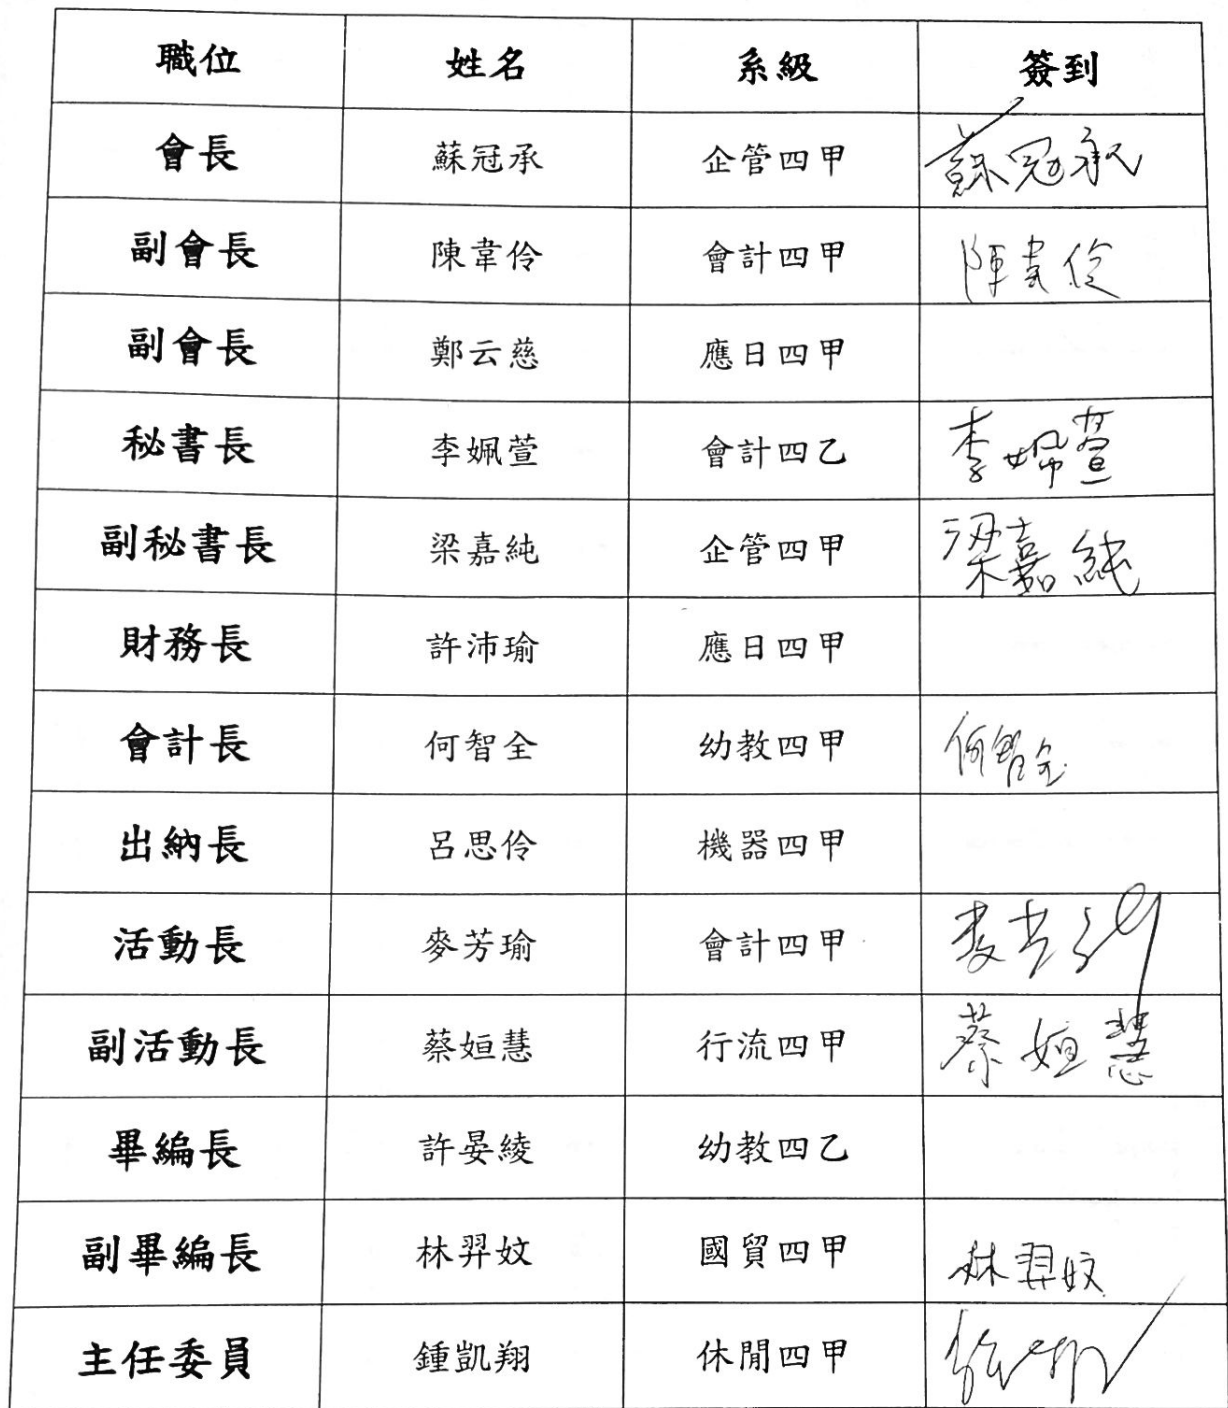 職位 姓名 系級 簽到
會長 蘇冠承 企管四甲 蘇冠承
副會長 陳韋伶 會計四甲 陳韋伶
副會長 鄭云慈 應日四甲
秘書長 李姵萱 會計四乙 李姵萱
副秘書長 梁嘉純 企管四甲 梁嘉純
財務長 許沛瑜 應日四甲
會計長 何智全 幼教四甲 何智全
出納長 呂思伶 機器四甲
活動長 麥芳瑜 會計四甲
副活動長 蔡姮慧 行流四甲 蔡姮慧
畢編長 許晏綾 幼教四乙
副畢編長 林羿妏 國貿四甲 林羿妏
主任委員 鍾凱翔 休閒四甲